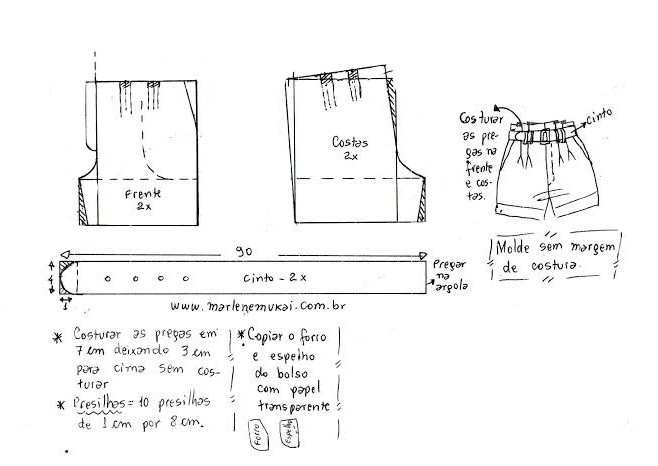 Frente
2x
Costas
2x
Costurar
as pre-
gas na
frente
e cos-
tas.
cinto
Molde sem margem
de costura.
90
4
4
1
cinto - 2x
Pregar
na
argola
www.marlenemukai.com.br
* Costurar as pregas em
7 cm deixando 3 cm
para cima sem cos-
turar
* Presilhas = 10 presilhas
de 1 cm por 8 cm.
* Copiar o forro
e espelho
do bolso
com papel
transparente
Forro
Espelho